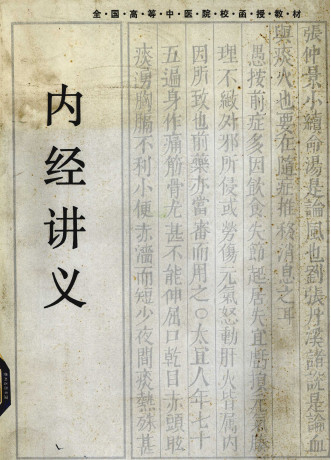 全·国·高·等·中·医·院·校·函·授·教·材
内经讲义
張仲景小續命湯是論風也劉張丹溪諸說是論血
與痰火也要在隨症推移消息之耳
愚按前症多因飲食失節起居失宜
理不緻外邪所侵或勞傷元氣怒動肝火皆屬內
因所致也前藥亦當審而用之○太宜人年七十
五遍身作痛筋骨尤甚不能伸屈口乾目赤頭眩
痰湧胸膈不利小便赤澀而短少夜間痰熱殊甚